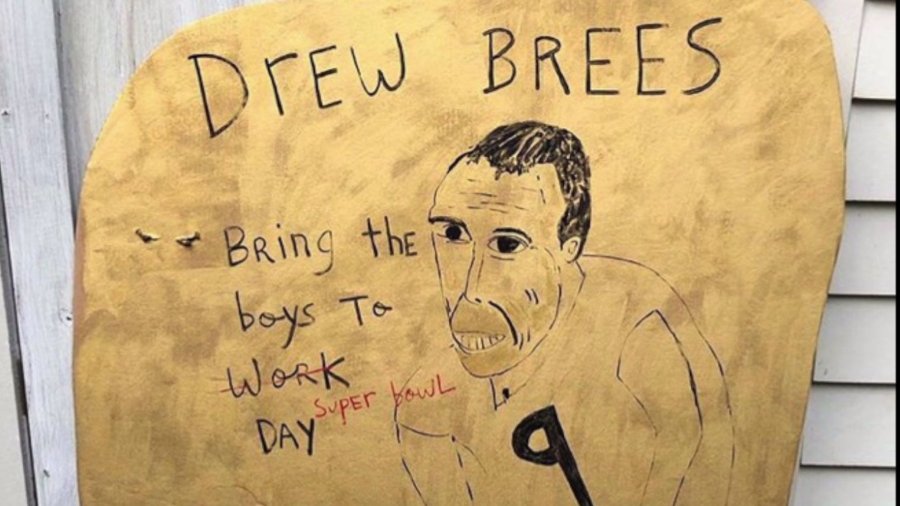 DrEW BREES
BRing thE
boys To
WORK
SUPER bowL
DAY
9